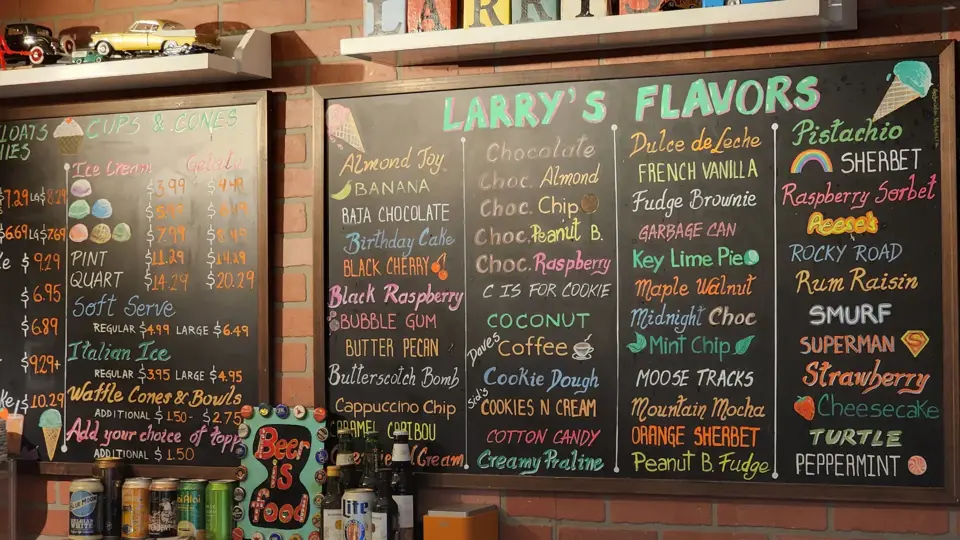 LARRY'S
LOATS
CUPS & CONES
Ice Cream Gelato
$7.29 LG $8.29
$3.99 $4.49
$6.69 LG $7.69
$7.99 $8.49
$9.29
PINT $11.29 $14.29
QUART $14.29 $20.29
$6.95
Soft Serve
REGULAR $4.99 LARGE $6.49
$6.89
Italian Ice
$9.29+
REGULAR $3.95 LARGE $4.95
Waffle Cones & Bowls
$10.29
ADDITIONAL $1.50 - $2.75
Add your choice of topp
ADDITIONAL $1.50
LARRY'S FLAVORS
Almond Joy
BANANA
BAJA CHOCOLATE
Birthday Cake
BLACK CHERRY
Black Raspberry
BUBBLE GUM
BUTTER PECAN
Butterscotch Bomb
Cappuccino Chip
CARAMEL CARIBOU
Cream
Chocolate
Choc. Almond
Choc. Chip
Choc. Peanut B.
Choc. Raspberry
C IS FOR COOKIE
COCONUT
Dave's Coffee
Cookie Dough
Sid's COOKIES N CREAM
COTTON CANDY
Creamy Praline
Dulce de Leche
FRENCH VANILLA
Fudge Brownie
GARBAGE CAN
Key Lime Pie
Maple Walnut
Midnight Choc
Mint Chip
MOOSE TRACKS
Mountain Mocha
ORANGE SHERBET
Peanut B. Fudge
Pistachio
SHERBET
Raspberry Sorbet
Reese's
ROCKY ROAD
Rum Raisin
SMURF
SUPERMAN
Strawberry
Cheesecake
TURTLE
PEPPERMINT
Beer
is
food
Lite